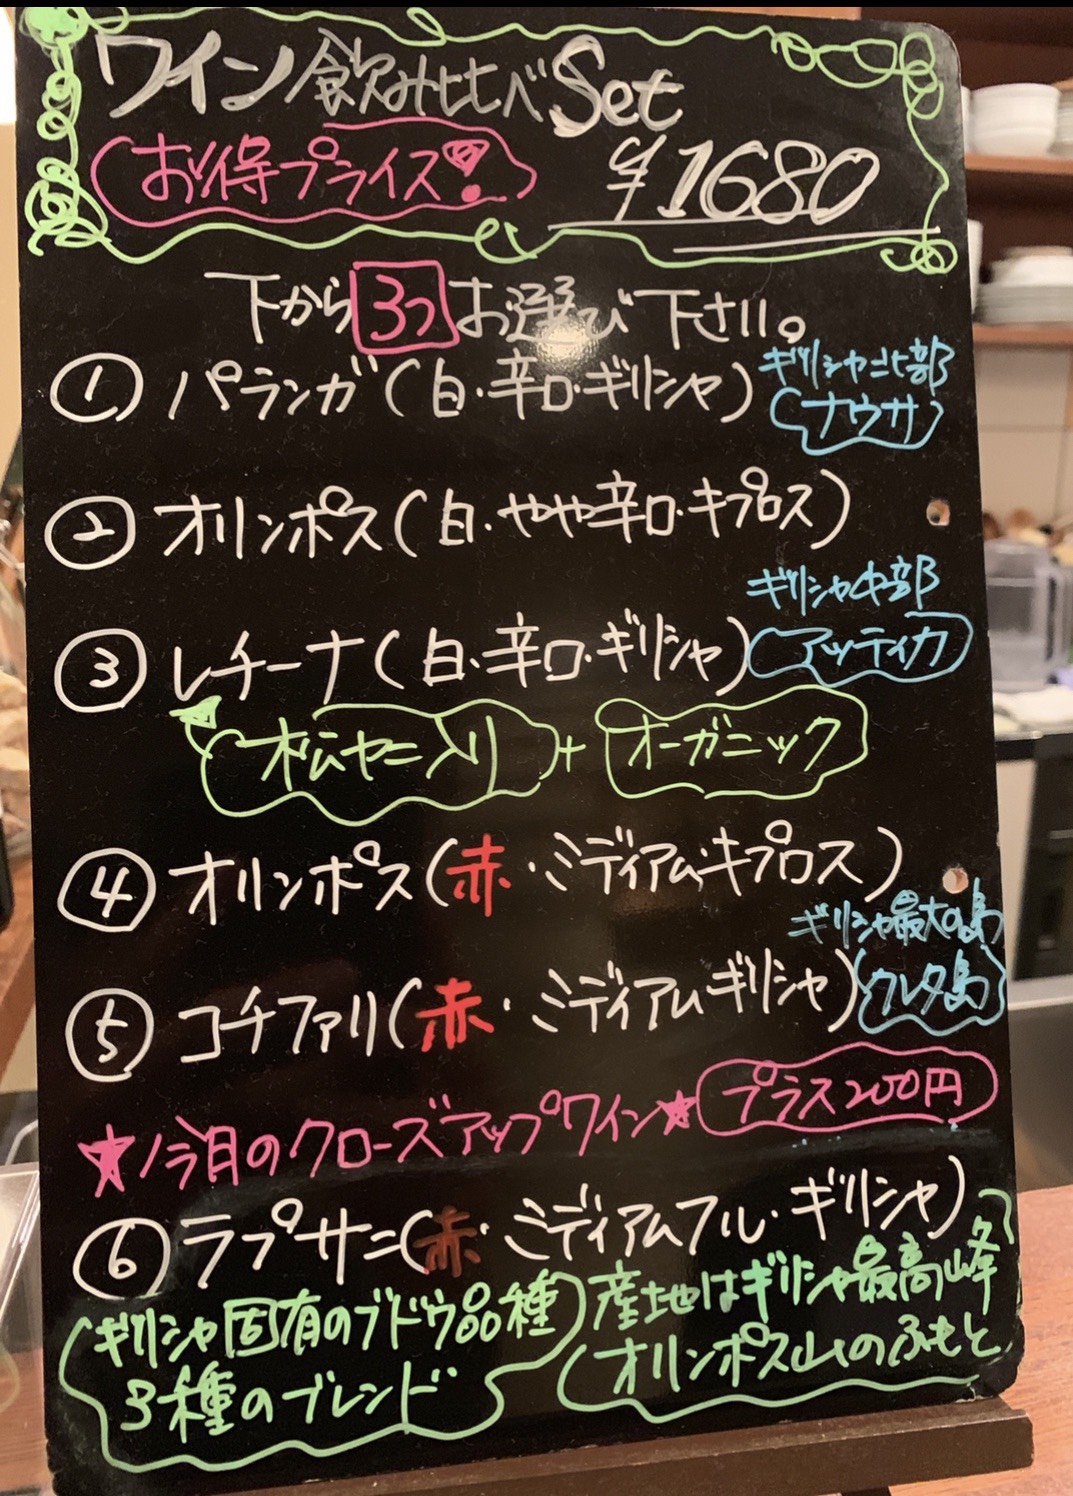 ワイン飲み比べSet
お得プライス!
¥1680
下から3つお選び下さい。
① パランガ(白・辛口・ギリシャ)
ギリシャ北部
ナウサ
② オリンポス(白・やや辛口・キプロス)
③ レチーナ(白・辛口・ギリシャ)
ギリシャ中部
アッティカ
松ヤニ入り + オーガニック
④ オリンポス(赤・ミディアム・キプロス)
⑤ コチファリ(赤・ミディアム・ギリシャ)
ギリシャ最大の島
クレタ島
★今月のクローズアップワイン★ プラス200円
⑥ ラプサニ(赤・ミディアムフル・ギリシャ)
ギリシャ固有のブドウ品種
3種のブレンド
産地はギリシャ最高峰
オリンポス山のふもと